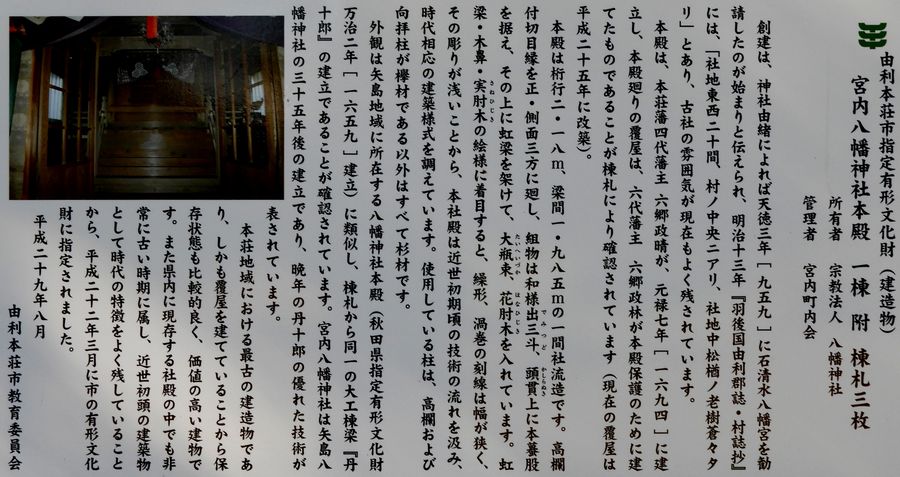 由利本荘市指定有形文化財（建造物）
宮内八幡神社本殿　一棟　附　棟札三枚
所有者　宗教法人　八幡神社
管理者　宮内町内会
創建は、神社由緒によれば天徳三年［九五九］に石清水八幡宮を勧
請したのが始まりと伝えられ、明治十三年『羽後国由利郡誌・村誌抄』
には、「社地東西二十間、村ノ中央ニアリ、社地中松楢ノ老樹蒼々タ
リ」とあり、古社の雰囲気が現在もよく残されています。
本殿は、本荘藩四代藩主　六郷政晴が、元禄七年［一六九四］に建
立し、本殿廻りの覆屋は、六代藩主　六郷政林が本殿保護のために建
てたものであることが棟札により確認されています（現在の覆屋は
平成二十五年に改築）。
本殿は桁行二・一八ｍ、梁間一・九八五ｍの一間社流造です。高欄
付切目縁を正・側面三方に廻し、組物は和様出三斗、頭貫上に本蟇股
を据え、その上に虹梁を架けて、大瓶束、花肘木を入れています。虹
梁・木鼻・実肘木の絵様に着目すると、繰形、渦巻の刻線は幅が狭く、
その彫りが浅いことから、本社殿は近世初期頃の技術の流れを汲み、
時代相応の建築様式を調えています。使用している柱は、高欄および
向拝柱が欅材である以外はすべて杉材です。
外観は矢島地域に所在する八幡神社本殿（秋田県指定有形文化財
万治二年［一六五九］建立）に類似し、棟札から同一の大工棟梁『丹
十郎』の建立であることが確認されています。宮内八幡神社は矢島八
幡神社の三十五年後の建立であり、晩年の丹十郎の優れた技術が
表されています。
本荘地域における最古の建造物であ
り、しかも覆屋を建てていることから保
存状態も比較的良く、価値の高い建物で
す。また県内に現存する社殿の中でも非
常に古い時期に属し、近世初頭の建築物
として時代の特徴をよく残していること
から、平成二十二年三月に市の有形文化
財に指定されました。
平成二十九年八月
由利本荘市教育委員会